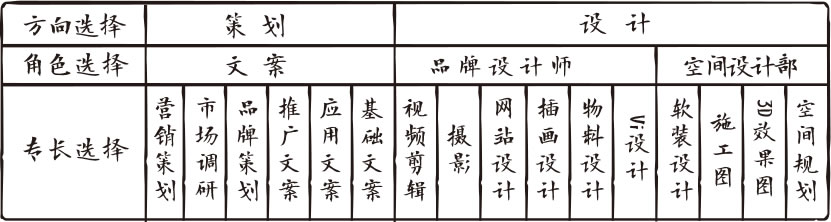 方向选择 策划 设计
角色选择 文案 品牌设计师 空间设计部
专长选择 营销策划 市场调研 品牌策划 推广文案 应用文案 基础文案 视频剪辑 摄影 网站设计 插画设计 物料设计 Vi设计 软装设计 施工图 3D效果图 空间规划